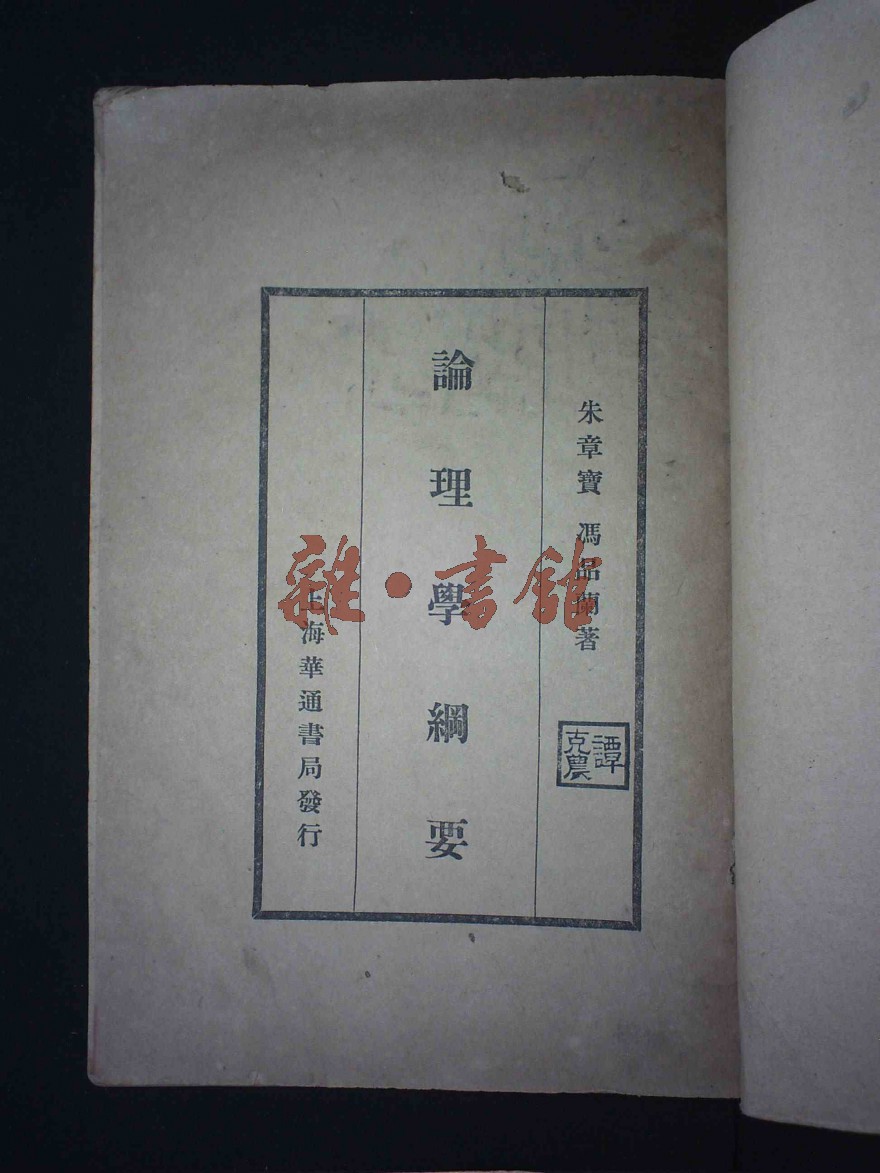 朱章寶 馮品蘭著
譚克農
論理學綱要
上海華通書局發行
雜·書館